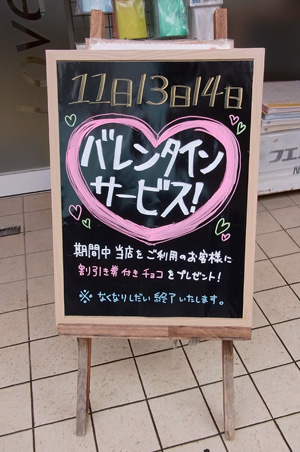 11日13日14日
バレンタイン
サービス!
期間中 当店をご利用のお客様に
割引き券付きチョコをプレゼント!
※ なくなりしだい 終了いたします。